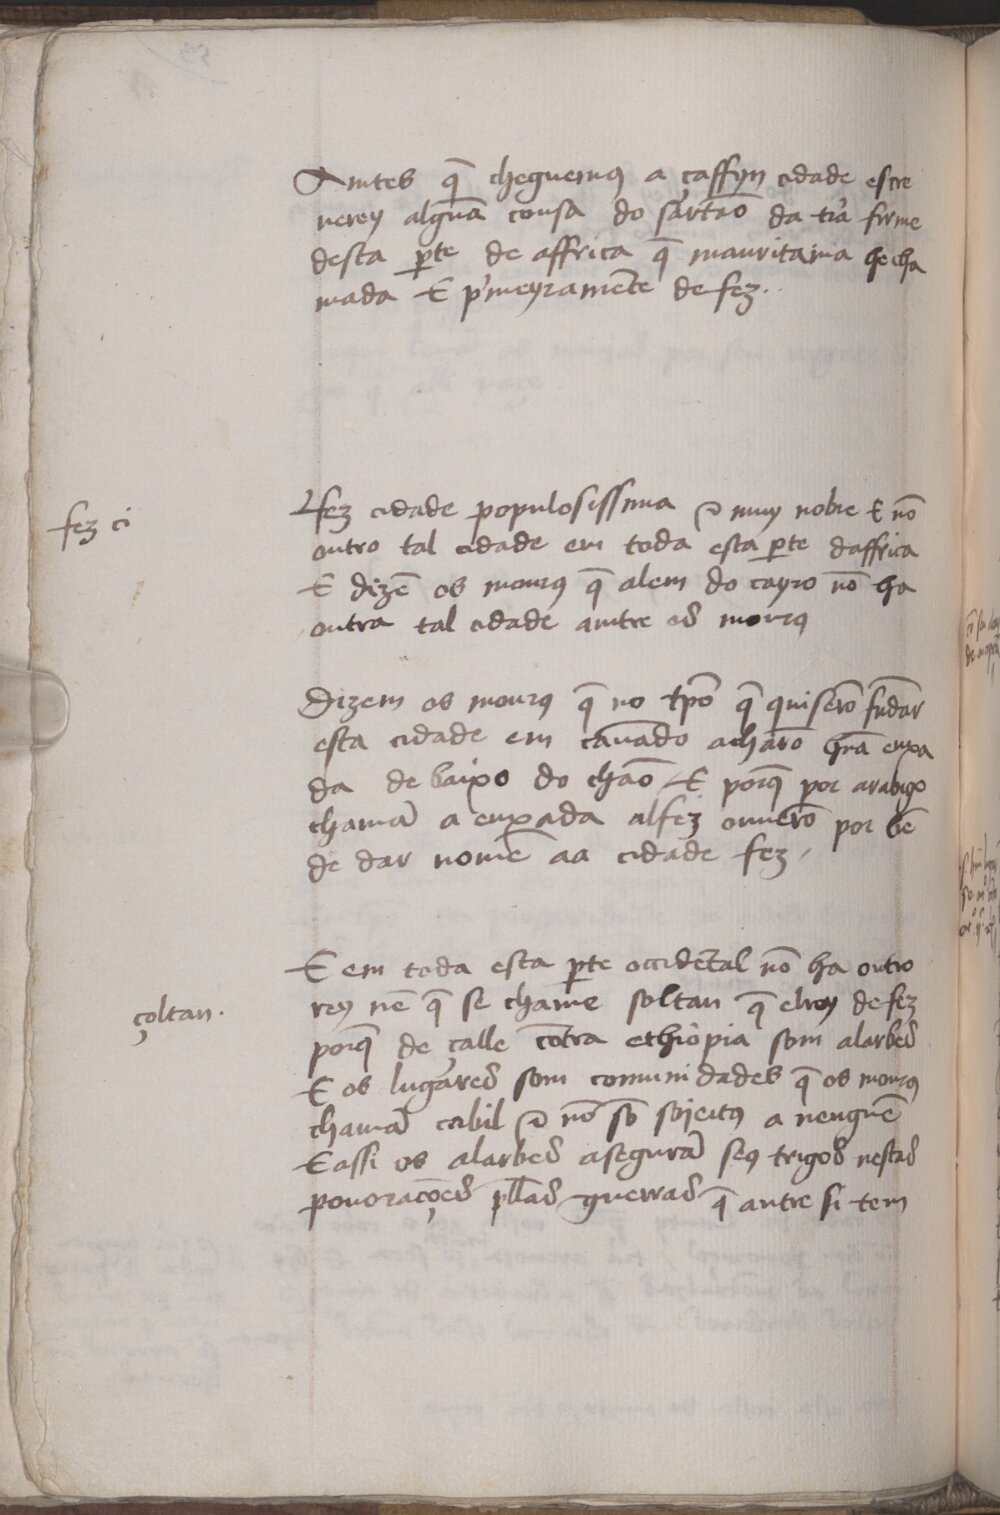 Amtes q̃ cheguemos a çaffyn cidade escre
uerey algũa cousa do sartaõ da trͣa firme
desta ꝑte de affrica q̃ mauritania he cha
mada E pͥmeyramẽte de fez.
fez ci
ffez cidade populosissima ⁊ muy nobre E nõ
outro tal cidade em toda esta ꝑte daffrica
E dizẽ os mouros q̃ alem do cayro nõ ha
outra tal cidade amtre os mouros
Dizem os mouros q̃ no tpõ q̃ quiserõ fũdar
esta cidade em cauãdo acharõ hũa enxa
da debaixo do chaõ E porq̃ por arabigo
chamã a enxada alfez ouuerõ por bẽ
de dar nomẽ aa cidade fez /
E em toda esta ꝑte occidẽtal nõ ha outro
çoltan.
rey nẽ q̃ se chame soltan q̃ elrey de fez
porq̃ de çalle cõtra ethiopia som alarbes
E os lugares som comunidades q̃ os mouros
chamã cabil ⁊ nõ sõ sojeitos a nenguẽ
E assi os alarbes asegurã seos trigos nestas
pouoraçoẽs pllas guerras q̃ antre si tem